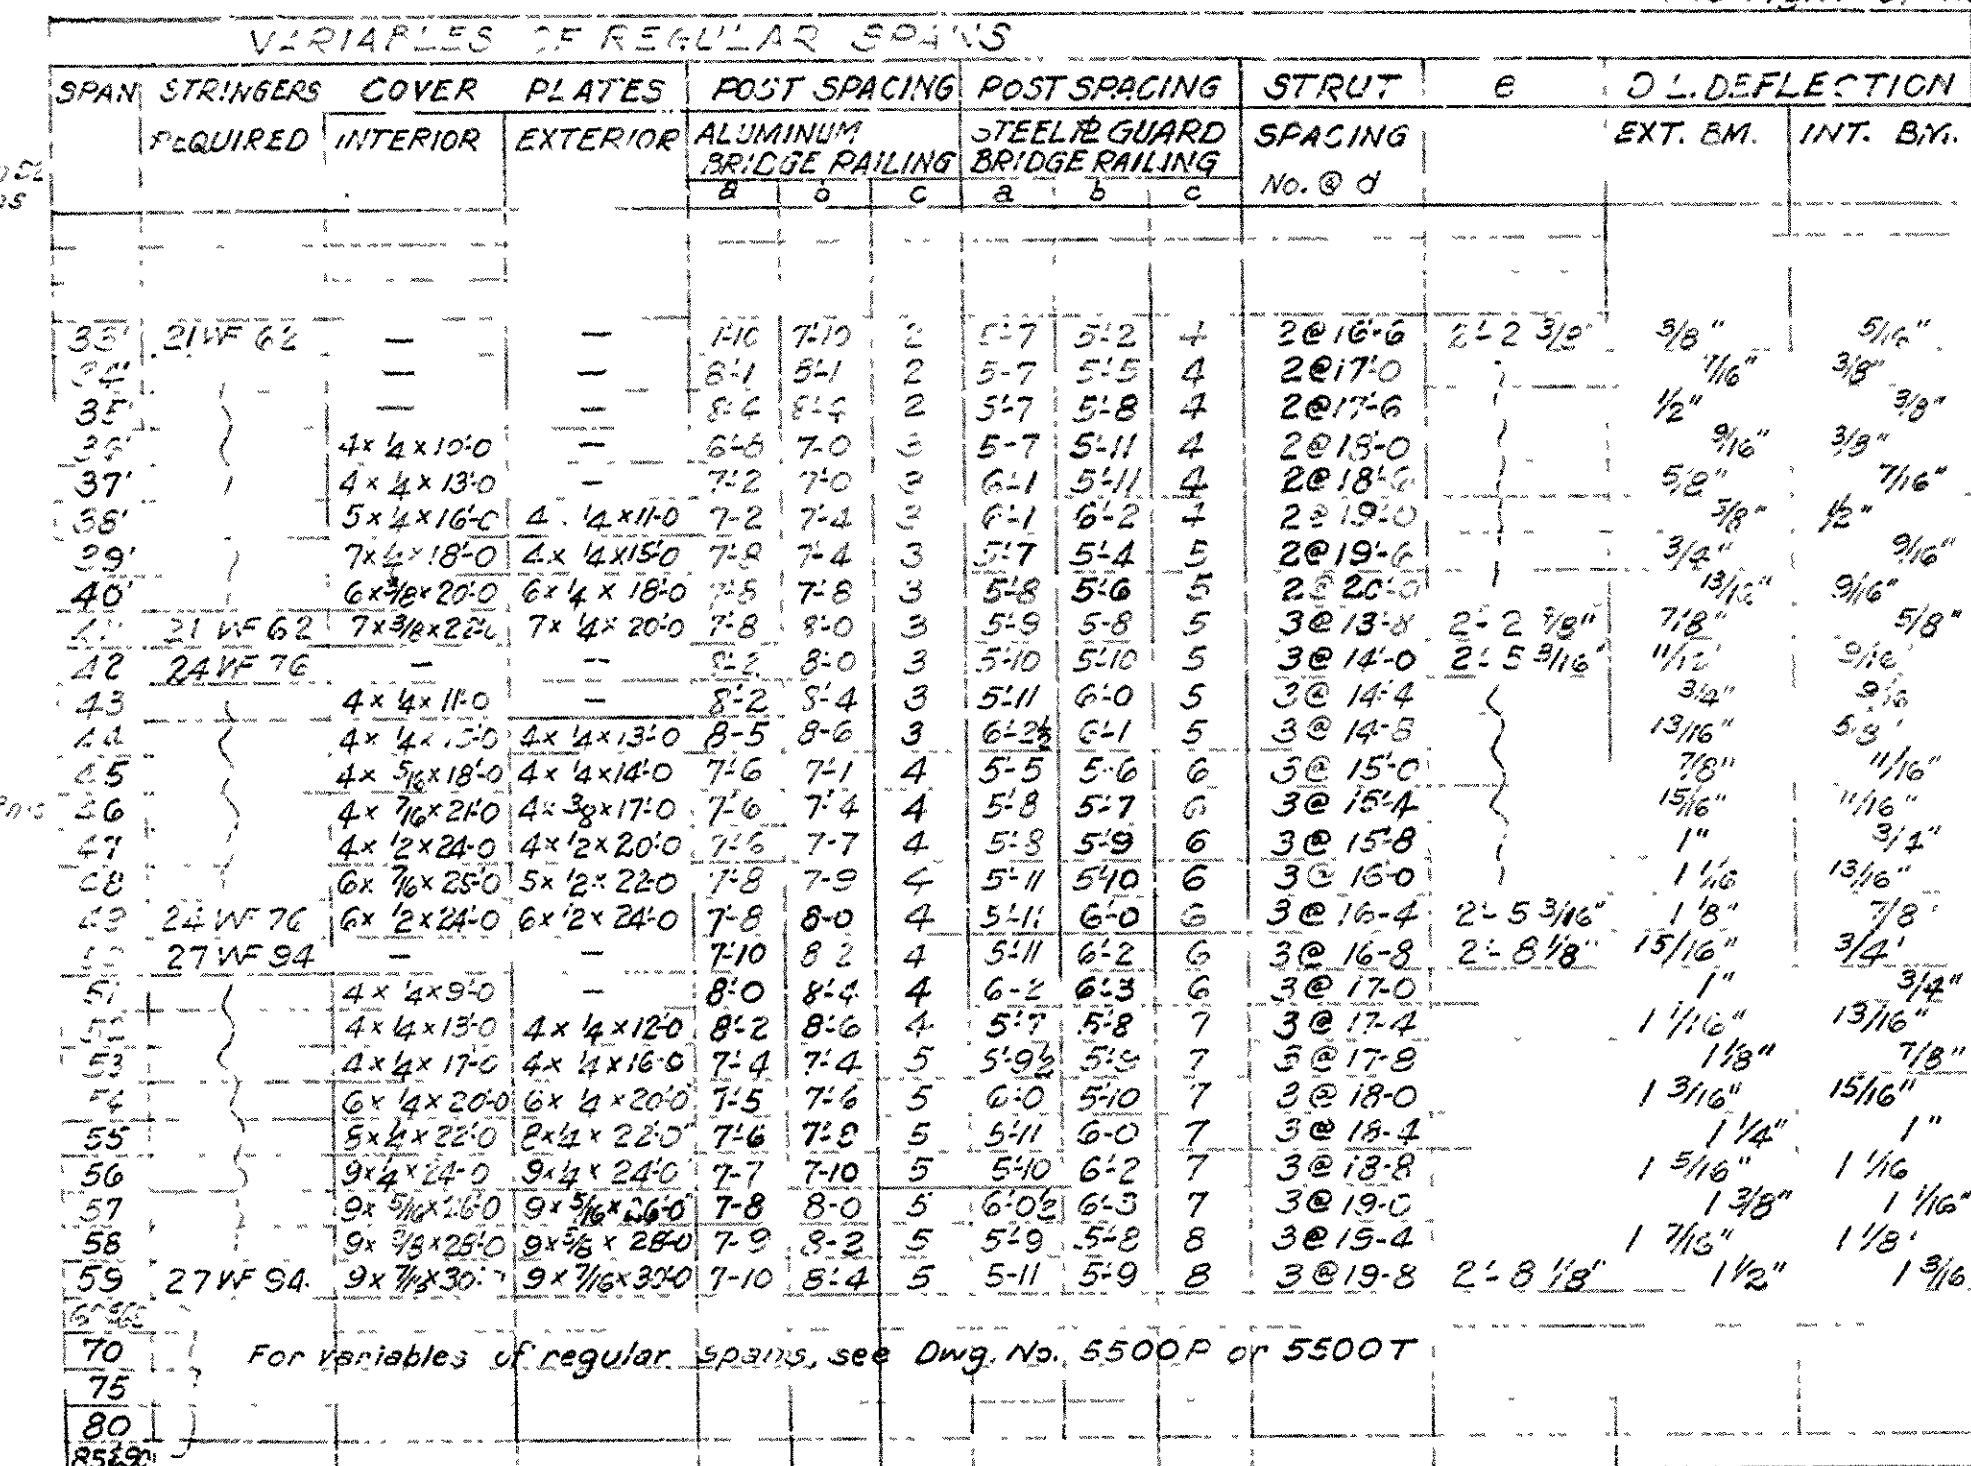 VARIABLES OF REGULAR SPANS
SPAN STRINGERS COVER PLATES POST SPACING POST SPACING STRUT e D.L. DEFLECTION
REQUIRED INTERIOR EXTERIOR ALUMINUM STEEL PL GUARD SPACING EXT. BM. INT. BM.
BRIDGE RAILING BRIDGE RAILING
a b c a b c No. @ d
33' 21WF62 — — 7'-10 2 5'-2 4 2@16'-6 2'-2 3/8" 3/8" 5/16"
34' — — 8'-1 8'-1 2 5-7 5'-5 4 2@17'-0 7/16" 3/8"
35' — — 8'-4 8'-4 2 5'-7 5'-8 4 2@17'-6 1/2" 3/8"
36' 4×1/4×10'-0 — 6'-8 7-0 3 5-7 5'-11 4 2@18'-0 9/16" 3/8"
37' 4×1/4×13'-0 — 7'-2 7'-0 3 6'-1 5'-11 4 2@18'-6 5/8" 7/16"
38' 5×1/4×16'-0 4 1/4×11'-0 7-2 7'-4 3 6'-1 6'-2 4 2@19'-0 5/8" 1/2"
39' 7×1/4×18'-0 4×1/4×15'-0 7'-8 7'-4 3 5'-7 5'-4 5 2@19'-6 3/4" 9/16"
40' 6×3/8×20'-0 6×1/4×18'-0 7'-8 7'-8 3 5'-8 5'-6 5 2@20'-0 13/16" 9/16"
41' 21WF62 7×3/8×22'-0 7×1/4×20'-0 7'-8 8'-0 3 5'-9 5-8 5 3@13'-8 2'-2 3/8" 7/8" 5/8"
42 24WF76 — — 8'-2 8'-0 3 5'-10 5'-10 5 3@14'-0 2'-5 3/16" 11/16" 9/16"
43 4×1/4×11'-0 — 8'-2 8'-4 3 5'-11 6'-0 5 3@14'-4 3/4" 9/16
44 4×1/4×15'-0 4×1/4×13'-0 8-5 8-6 3 6'-2½ 6'-1 5 3@14'-8 13/16" 5/8"
45 4×5/16×18'-0 4×1/4×14'-0 7'-6 7'-1 4 5'-5 5'-6 6 3@15'-0 7/8" 11/16"
46 4×7/16×21'-0 4×3/8×17'-0 7'-6 7'-4 4 5'-8 5'-7 6 3@15'-4 15/16" 11/16"
47 4×1/2×24'-0 4×1/2×20'-0 7'-6 7-7 4 5'-8 5'-9 6 3@15'-8 1" 3/4"
48 6×7/16×25'-0 5×1/2×22'-0 7'-8 7-9 4 5'-11 5'-10 6 3@16'-0 1 1/16 13/16"
49 24WF76 6×1/2×24'-0 6×1/2×24'-0 7'-8 8-0 4 5'-11 6'-0 6 3@16-4 2'-5 3/16" 1 1/8" 7/8"
50 27WF94 — — 7'-10 8 2 4 5'-11 6'-2 6 3@16-8 2'-8 1/8" 15/16" 3/4"
51 4×1/4×9'-0 — 8'-0 8'-4 4 6-2 6'-3 6 3@17-0 1" 3/4"
52 4×1/4×13'-0 4×1/4×12'-0 8'-2 8'-6 4 5'-7 5'-8 7 3@17-4 1 1/16" 13/16"
53 4×1/4×17'-0 4×1/4×16-0 7'-4 7'-4 5 5'-9½ 5'-9 7 3@17-8 1 1/8" 7/8"
54 6×1/4×20'-0 6×1/4×20'-0 7'-5 7'-6 5 6'-0 5'-10 7 3@18-0 1 3/16" 15/16"
55 8×1/4×22'-0 8×1/4×22'-0" 7'-6 7'-8 5 5'-11 6-0 7 3@18-4 1 1/4" 1"
56 9×1/4×24-0 9×1/4×24'-0 7-7 7-10 5 5'-10 6'-2 7 3@18-8 1 5/16" 1 1/16
57 9×5/16×26'-0 9×5/16×26'-0 7-8 8-0 5 6'-0½ 6'-3 7 3@19-0 1 3/8" 1 1/16"
58 9×3/8×28'-0 9×3/8×28'-0 7-9 8-2 5 5'-9 5'-8 8 3@19-4 1 7/16" 1 1/8"
59 27WF94 9×7/16×30'-0 9×7/16×30'-0 7-10 8'-4 5 5-11 5'-9 8 3@19-8 2'-8 1/8" 1 1/2" 1 3/16
70 For variables of regular spans, see Dwg. No. 5500P or 5500T
75
80
85&90